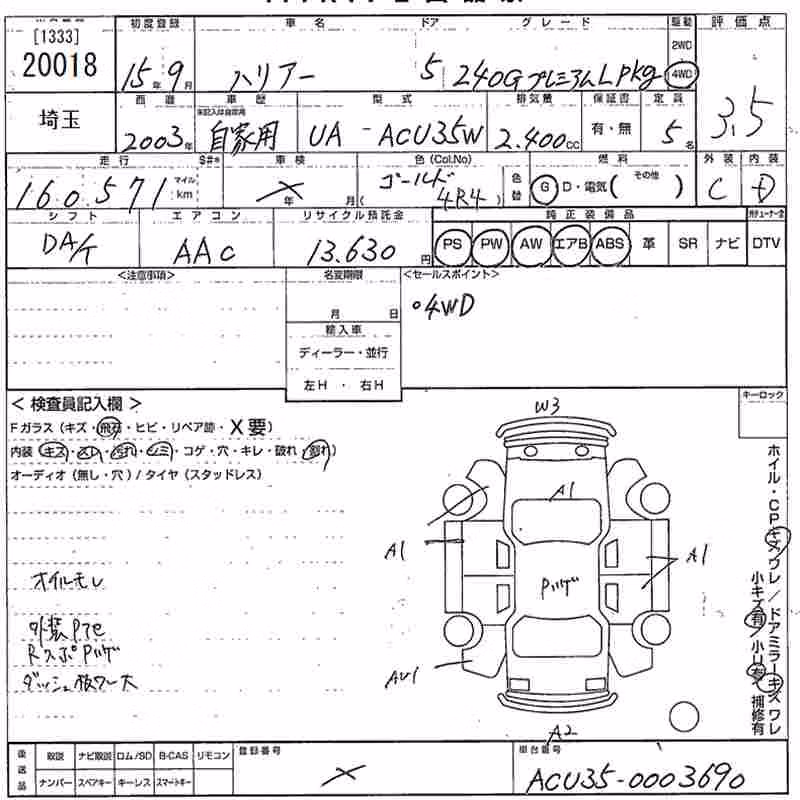 [1333]
20018
初度登録 車名 ドア グレード 駆動 評価点
15年9月 ハリアー 5 240G プレミアムLpkg 2WD 4WD 3.5
埼玉
西暦 車歴 型式 排気量 保証書 定員
2003年 自家用 UA - ACU35W 2.400cc 有・無 5名
走行 $#* 車検 色 (Col.No) 燃料 外装 内装
160.571 マイル km × 年 月 ( ゴールド 4R4 ) 色替 G D・電気 ( その他 ) C D
シフト エアコン リサイクル預託金 純正装備品
DA/T AAC 13.630円 PS PW AW エアB ABS 革 SR ナビ DTV
<注意事項> 名変期限 <セールスポイント>
月 日 ○4WD
輸入車
ディーラー・並行
左H ・ 右H
< 検査員記入欄 > キーロック
Fガラス (キズ・飛石・ヒビ・リペア跡・X要)
内装 (キズ・スレ・汚れ・シミ・コゲ・穴・キレ・破れ・割れ)
オーディオ (無し・穴) / タイヤ (スタッドレス)
オイルモレ
外装Pアセ
RスポPハゲ
ダッシュ板ワレ大
W3
A1
A1 A1
Pハゲ
AU1
A2
ホイル・CPキズワレ / ドアミラーキズワレ
小キズ有 / 小U有 補修有
後送品 取説 ナビ取説 ロム/SD B-CAS リモコン 登録番号 車台番号
ナンバー スペアキー キーレス スマートキー × ACU35-0003690